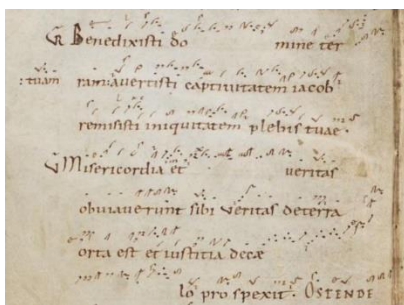 GR Benedixisti do mine ter
: tuam ram avertisti captivitatem iacob
remisisti iniquitatem plebis tuae.
V Misericordia et veritas
obviaverunt sibi veritas deterra
orta est et iustitia decae
lo prospexit. OSTENDE